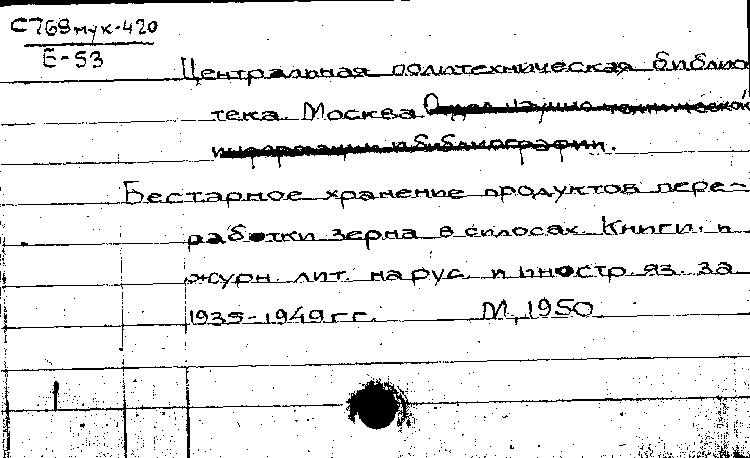 С768мук-420
Б-53
Центральная политехническая библио
тека. Москва. Отдел научно-технической
информации и библиографии.
Бестарное хранение продуктов пере-
работки зерна в силосах. Книги. и
журн. лит. на рус. и иностр. яз. за
1935-1949 гг. М, 1950